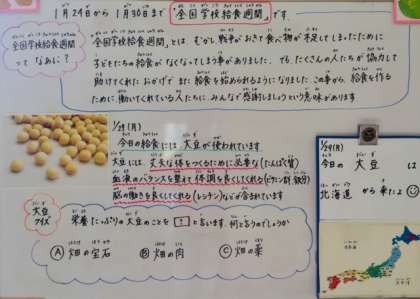 1月24日から 1月30日まで「全国学校給食週間」です。
全国学校給食週間
って なあに?
"全国学校給食週間"とは、むかし戦争がおきて食べ物が不足してしまったために
子どもたちの給食がなくなってしまう事がありました。でも、たくさんの人たちが協力して
助けてくれた おかげで また 給食を始められるようになりました。この事から、給食を作る
ために働いてくれている人たちに みんなで感謝しましょうという意味があります
1/29(月)
今日の給食には 大豆が使われています
大豆には 丈夫な体をつくるために必要な(たんぱく質)
血液のバランスを整えて 体調を良くしてくれる(ビタミン群、鉄分)
脳の働きを良くしてくれる(レシチン)などが含まれています
大豆
クイズ
栄養たっぷりの大豆のことを ? と言います。何と言うのでしょうか
Ⓐ 畑の宝石 Ⓑ 畑の肉 Ⓒ 畑の薬
1/29(月)
今日の 大豆 は
北海道 から来たよ